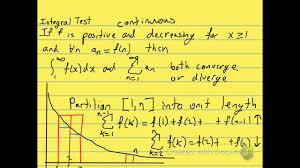 Integral Test continuous
If f is positive and decreasing for x≥1
and ∀n aₙ = f(n) then
∫₁^∞ f(x)dx and ∑_{n=1}^∞ aₙ both converge or diverge
Partition [1,n] into unit length
∑_{k=1}^{n-1} f(k) = f(1) + f(2) + ··· + f(n-1) ↑
∑_{k=2}^{n} f(k) = f(2) + ··· + f(n) ↓